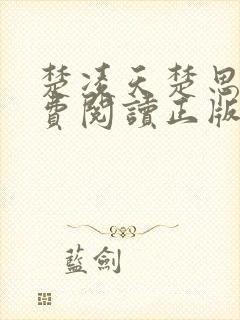 楚凌天楚思
費閱讀正版
藍劍